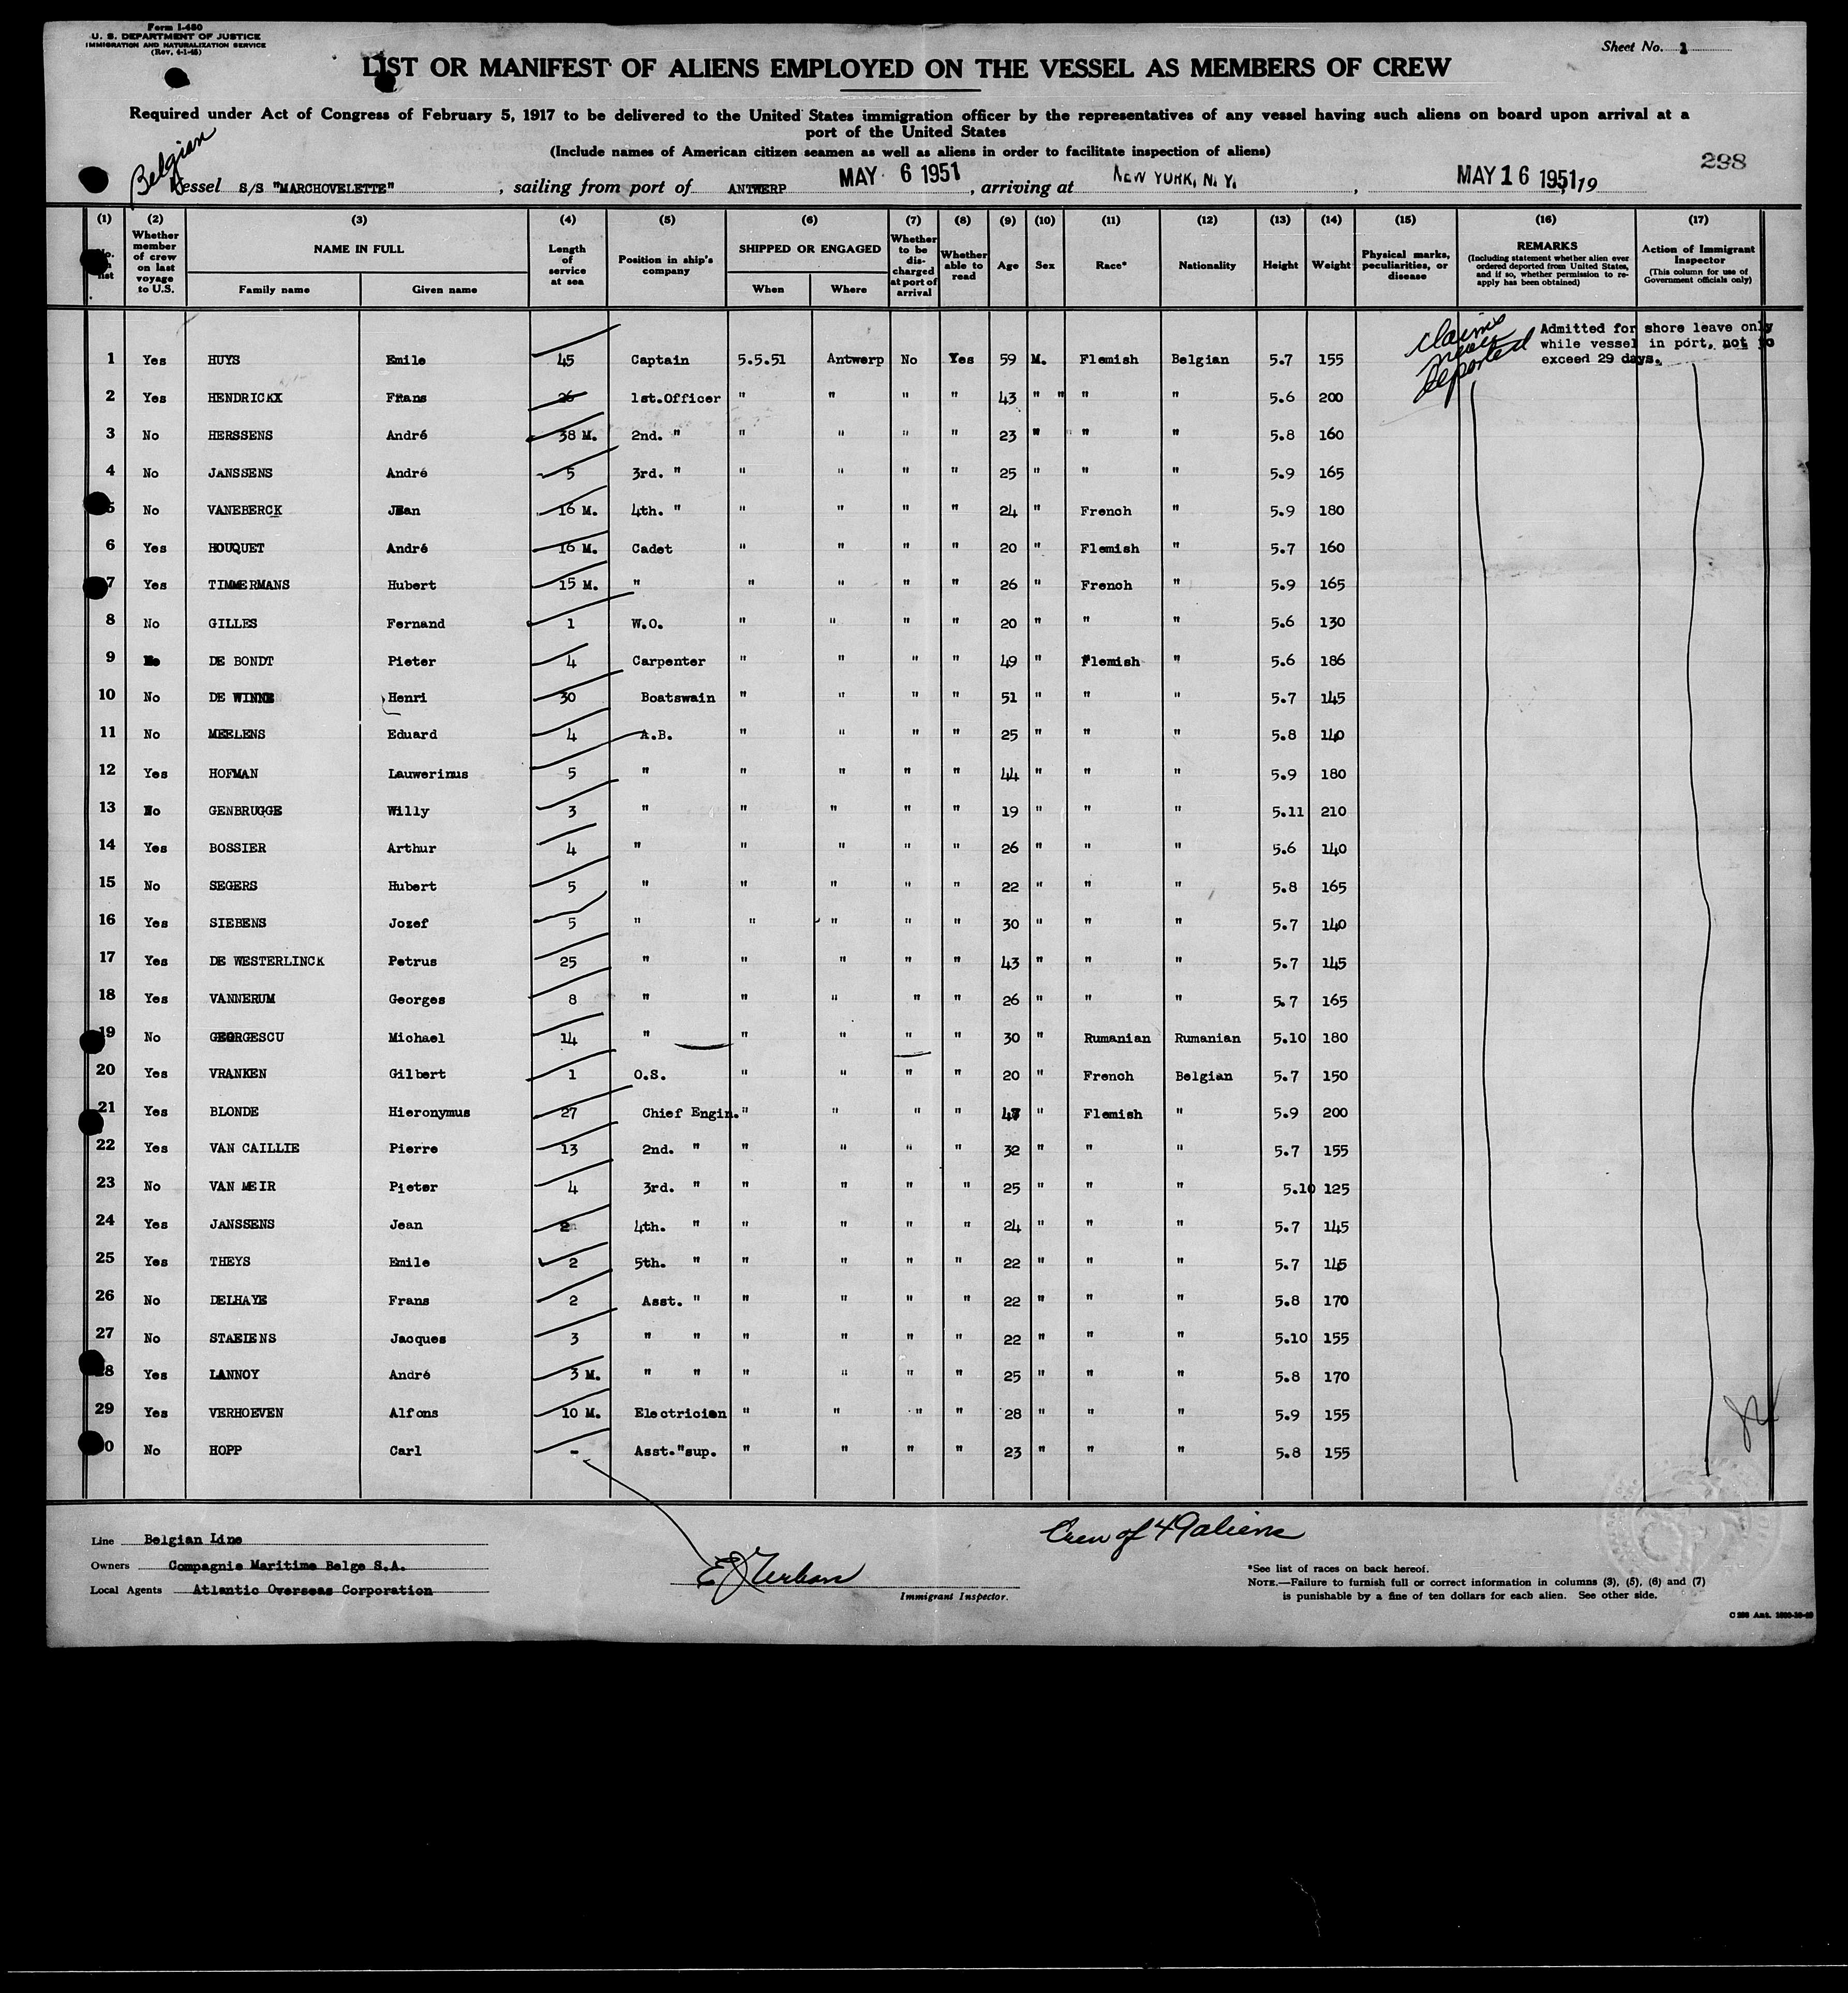 Form I-480
U. S. DEPARTMENT OF JUSTICE
IMMIGRATION AND NATURALIZATION SERVICE
(Rev. 4-1-45)
Sheet No. 1
LIST OR MANIFEST OF ALIENS EMPLOYED ON THE VESSEL AS MEMBERS OF CREW
Required under Act of Congress of February 5, 1917 to be delivered to the United States immigration officer by the representatives of any vessel having such aliens on board upon arrival at a
port of the United States
(Include names of American citizen seamen as well as aliens in order to facilitate inspection of aliens)
298
Belgian
Vessel S/S "MARCHOVELETTE", sailing from port of ANTWERP MAY 6 1951, arriving at NEW YORK, N. Y., MAY 16 1951, 19
(1) (2) (3) (4) (5) (6) (7) (8) (9) (10) (11) (12) (13) (14) (15) (16) (17)
No. list Whether member of crew on last voyage to U.S. NAME IN FULL Family name Given name Length of service at sea Position in ship's company SHIPPED OR ENGAGED When Where Whether to be discharged at port of arrival Whether able to read Age Sex Race* Nationality Height Weight Physical marks, peculiarities, or disease REMARKS (Including statement whether alien ever ordered deported from United States, and if so, whether permission to re-apply has been obtained) Action of Immigrant Inspector (This column for use of Government officials only)
claims never deported
Admitted for shore leave only
while vessel in port, not to
exceed 29 days.
1 Yes HUYS Emile 45 Captain 5.5.51 Antwerp No Yes 59 M. Flemish Belgian 5.7 155
2 Yes HENDRICKX Frans 26 1st.Officer " " " " 43 " " " " 5.6 200
3 No HERSSENS André 38 M. 2nd. " " " " " 23 " " " 5.8 160
4 No JANSSENS André 5 3rd. " " " " " 25 " " " 5.9 165
5 No VANEBERCK Jean 16 M. 4th. " " " " " 24 " French " 5.9 180
6 Yes HOUQUET André 16 M. Cadet " " " " 20 " Flemish " 5.7 160
7 Yes TIMMERMANS Hubert 15 M. " " " " " 26 " French " 5.9 165
8 No GILLES Fernand 1 W.O. " " " " 20 " " " 5.6 130
9 No DE BONDT Pieter 4 Carpenter " " " " 49 " Flemish " 5.6 186
10 No DE WINNE Henri 30 Boatswain " " " " 51 " " " 5.7 145
11 No MEELENS Eduard 4 A.B. " " " " 25 " " " 5.8 140
12 Yes HOFMAN Lauwerinus 5 " " " " " 44 " " " 5.9 180
13 No GENBRUGGE Willy 3 " " " " " 19 " " " 5.11 210
14 Yes BOSSIER Arthur 4 " " " " " 26 " " " 5.6 140
15 No SEGERS Hubert 5 " " " " " 22 " " " 5.8 165
16 Yes SIEBENS Jozef 5 " " " " " 30 " " " 5.7 140
17 Yes DE WESTERLINCK Petrus 25 " " " " " 43 " " " 5.7 145
18 Yes VANNERUM Georges 8 " " " " " 26 " " " 5.7 165
19 No GEORGESCU Michael 14 " " " " " 30 " Rumanian Rumanian 5.10 180
20 Yes VRANKEN Gilbert 1 O.S. " " " " 20 " French Belgian 5.7 150
21 Yes BLONDE Hieronymus 27 Chief Engin. " " " " 47 " Flemish " 5.9 200
22 Yes VAN CAILLIE Pierre 13 2nd. " " " " " 32 " " " 5.7 155
23 No VAN MEIR Pieter 4 3rd. " " " " " 25 " " " 5.10 125
24 Yes JANSSENS Jean 2 4th. " " " " " 24 " " " 5.7 145
25 Yes THEYS Emile 2 5th. " " " " " 22 " " " 5.7 145
26 No DELHAYE Frans 2 Asst. " " " " " 22 " " " 5.8 170
27 No STAEIENS Jacques 3 " " " " " " 22 " " " 5.10 155
28 Yes LANNOY André 3 M. " " " " " " 25 " " " 5.8 170
29 Yes VERHOEVEN Alfons 10 M. Electricien " " " " 28 " " " 5.9 155
30 No HOPP Carl - Asst."sup. " " " " 23 " " " 5.8 155
Line Belgian Line
Owners Compagnie Maritime Belge S.A.
Local Agents Atlantic Overseas Corporation
Immigrant Inspector.
Crew of 49 aliens
*See list of races on back hereof.
NOTE.—Failure to furnish full or correct information in columns (3), (5), (6) and (7)
is punishable by a fine of ten dollars for each alien. See other side.